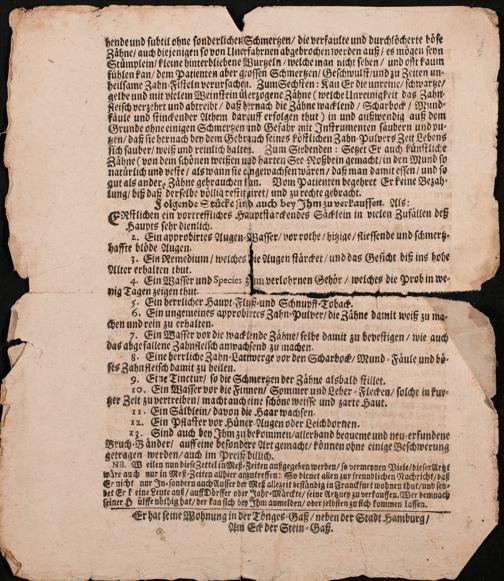 hende und subtil ohne sonderlichen Schmertzen / die verfaulte und durchlöcherte böse
Zähne / auch diejenigen so von Unerfahrnen abgebrochen werden auß / es mögen seyn
Stümplein / kleine hinterbliebene Wurtzeln / welche man nicht sehen / und offt kaum
fühlen kan / dem Patienten aber grossen Schmertzen / Geschwulst / und zu Zeiten un-
heilsame Zahn-Fisteln verursachen. Zum Sechsten: Kan Er die unreine / schwartze /
gelbe und mit vielem Weinstein überzogene Zähne (welche Unreinigkeit das Zahn-
fleisch verzehrt und abtreibt / daß hernach die Zähne wacklend / Scharbock / Mund-
fäule und stinckender Athem darauff erfolgen thut) in und außwendig auß dem
Grunde ohne einigen Schmertzen und Gefahr mit Instrumenten säubern und pu-
tzen / daß sie hernach bey dem Gebrauch seines köstlichen Zahn-Pulvers Zeit Lebens
sich sauber / weiß und reinlich halten. Zum Siebenden: Setzet Er auch künstliche
Zähne / von dem schönen weissen und harten See-Roßbein gemacht / in den Mund so
natürlich und veste / als wann sie angewachsen wären / daß man damit essen / und so
gut als andere Zähne gebrauchen kan. Vom Patienten begehret Er keine Bezah-
lung / biß daß derselbe völlig restituiret / und zu rechte gebracht.
Folgende Stücke sind auch bey Ihm zu verkauffen. Als:
Erstlichen ein vortreffliches Hauptstärckendes Säcklein in vielen Zufällen deß
Haupts sehr dienlich.
2. Ein approbirtes Augen-Wasser / vor rothe / hitzige / fliessende und schmertz-
haffte blöde Augen.
3. Ein Remedium / welches die Augen stärcket / und das Gesicht biß ins hohe
Alter erhalten thut.
4. Ein Wasser und Species zum verlohrnen Gehör / welches die Prob in we-
nig Tagen zeigen thut.
5. Ein herrlicher Haupt-Fluß- und Schnupff-Toback.
6. Ein ungemeines approbirtes Zahn-Pulver / die Zähne damit weiß zu ma-
chen und rein zu erhalten.
7. Ein Wasser vor die wacklende Zähne / selbe damit zu bevestigen / wie auch
das abgefallene Zahnfleisch anwachsend zu machen.
8. Eine herrliche Zahn-Lattwerge vor den Scharbock / Mund-Fäule und bö-
ses Zahnfleisch damit zu heilen.
9. Eine Tinctur / so die Schmertzen der Zähne alsbald stillet.
10. Ein Wasser vor die Finnen / Sommer und Leber-Flecken / solche in kur-
tzer Zeit zu vertreiben / macht auch eine schöne weisse und zarte Haut.
11. Ein Sälblein / davon die Haar wachsen.
12. Ein Pflaster vor Hüner-Augen oder Leichdornen.
13. Sind auch bey Ihm zu bekommen / allerhand bequeme und neu-erfundene
Bruch-Bänder / auff eine besondere Art gemacht / können ohne einige Beschwerung
getragen werden / auch im Preiß billich.
NB. Weilen nun diese Zettel in Meß-Zeiten außgegeben werden / so vermeynen Viele / dieser Artzt
wäre auch nur in Meß-Zeiten allhier anzutreffen: So dienet allen zur freundlichen Nachricht / daß
Er nicht nur In- sondern auch Ausser der Meß allezeit beständig in Franckfurt wohnen thut / und sen-
det Er keine Leute auß / auff Dörffer oder Jahr-Märckte / seine Artzney zu verkauffen. Wer demnach
seiner Hülffe nöthig hat / der kan sich bey Ihm anmelden / oder selbsten zu sich kommen lassen.
Er hat seine Wohnung in der Tönges-Gaß / neben der Stadt Hamburg /
Am Eck der Stein-Gaß.